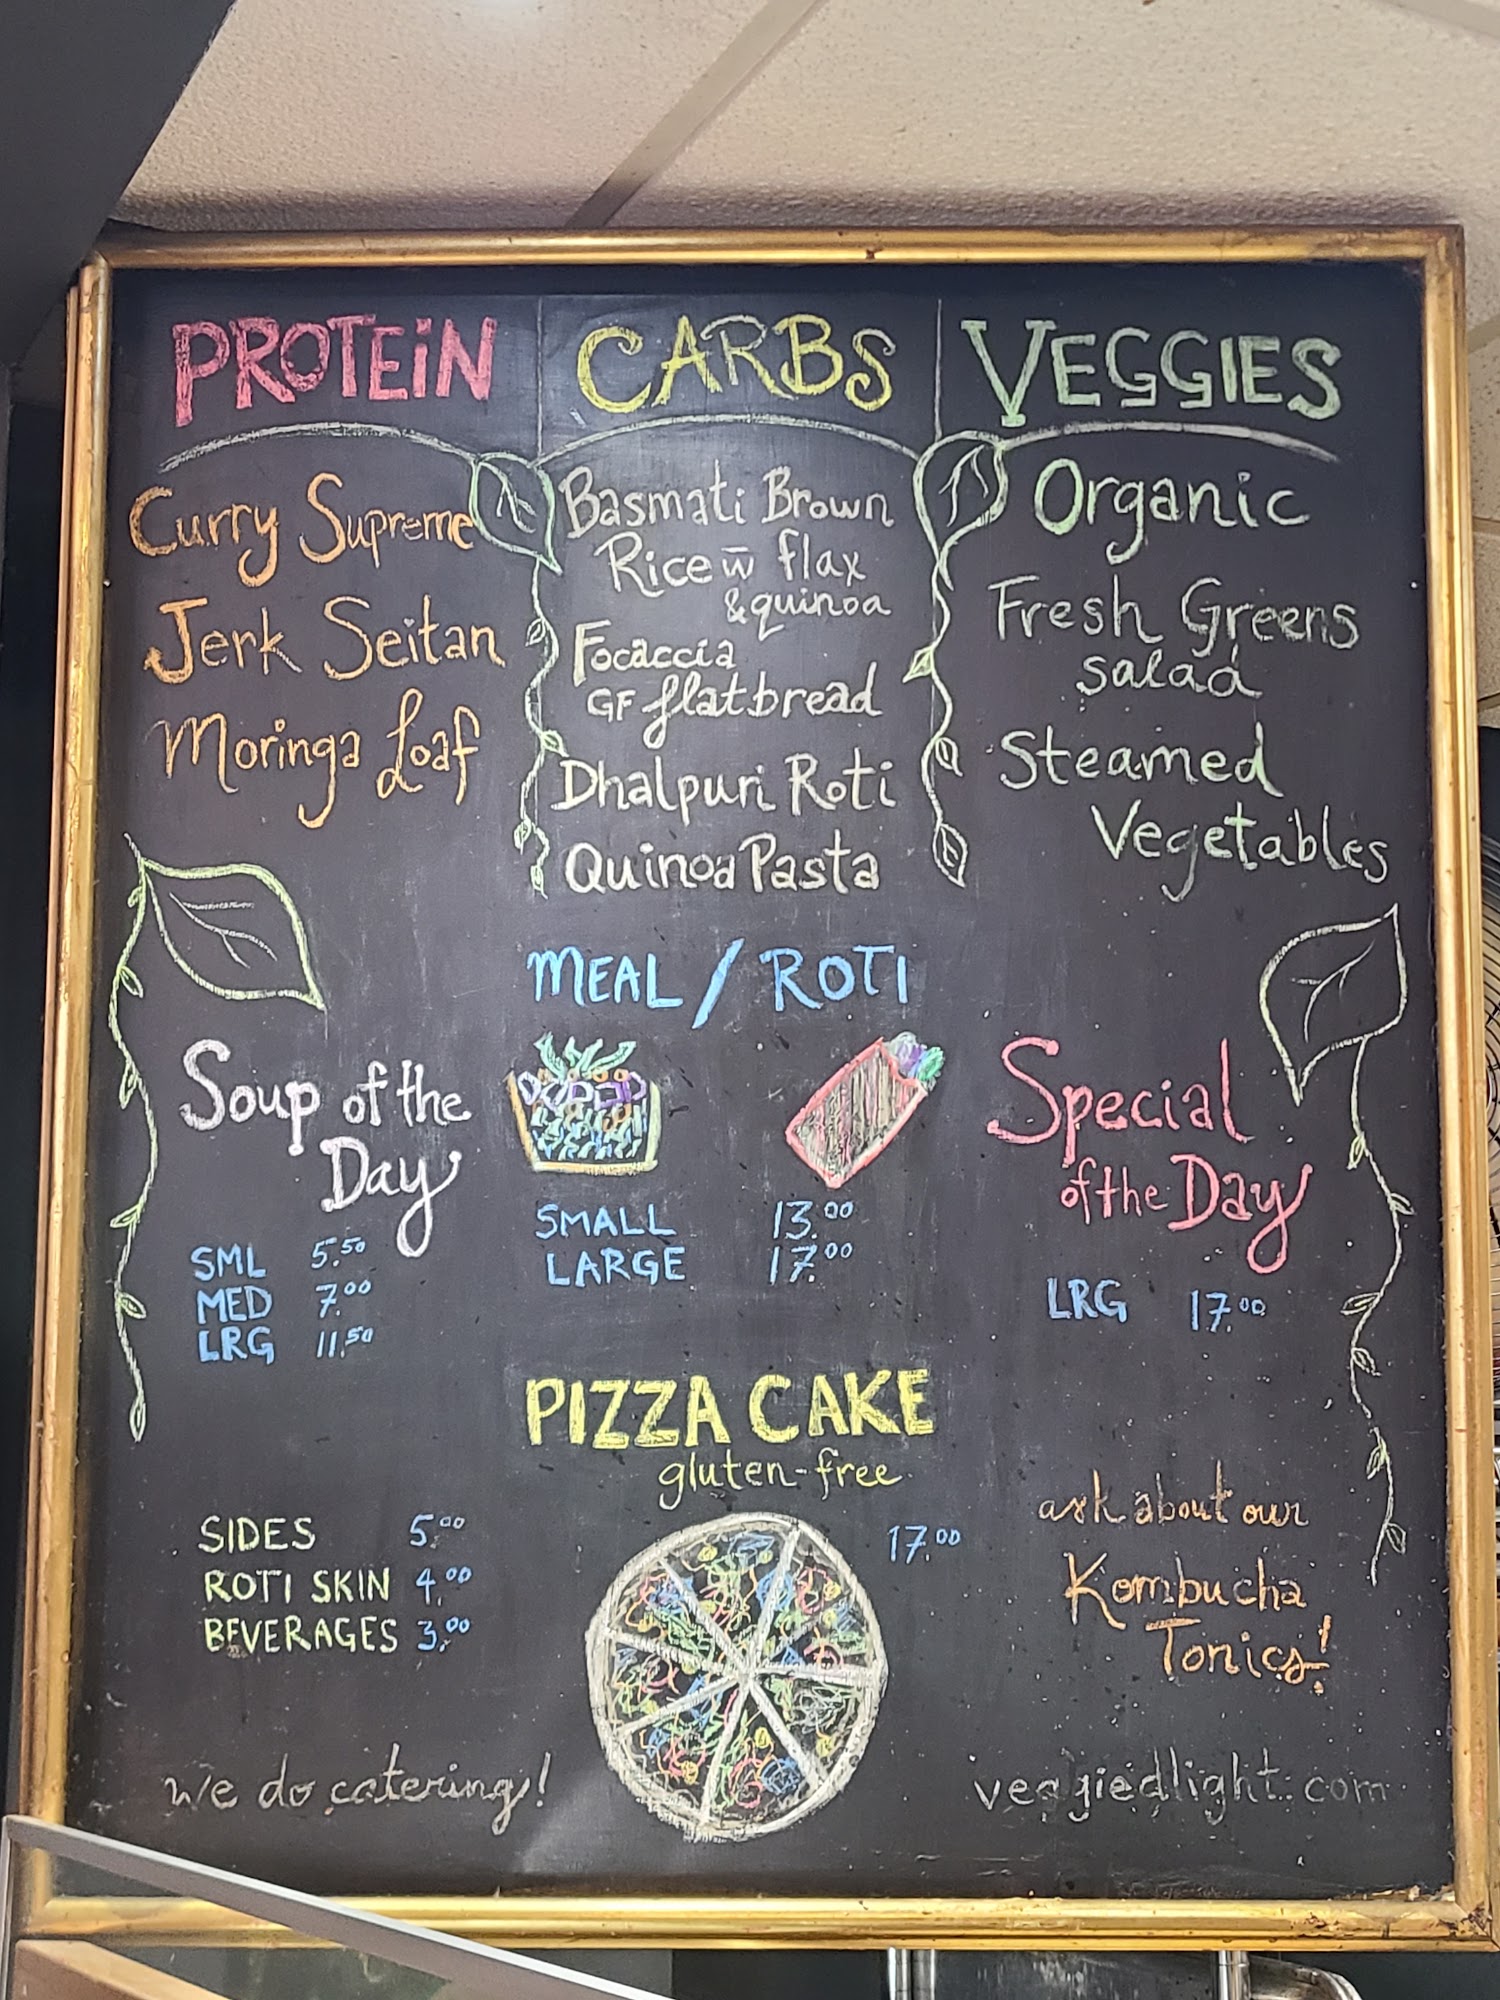 PROTEiN
Curry Supreme
Jerk Seitan
Moringa Loaf
CARBS
Basmati Brown
Rice w̅ flax
& quinoa
Focaccia
GF flatbread
Dhalpuri Roti
Quinoa Pasta
VEGGIES
Organic
Fresh Greens
salad
Steamed
Vegetables
MEAL / ROTI
SMALL 13.00
LARGE 17.00
Soup of the
Day
SML 5.50
MED 7.00
LRG 11.50
Special
of the Day
LRG 17.00
PIZZA CAKE
gluten-free
17.00
SIDES 5.00
ROTI SKIN 4.00
BEVERAGES 3.00
ask about our
Kombucha
Tonics!
we do catering!
veggiedlight.com